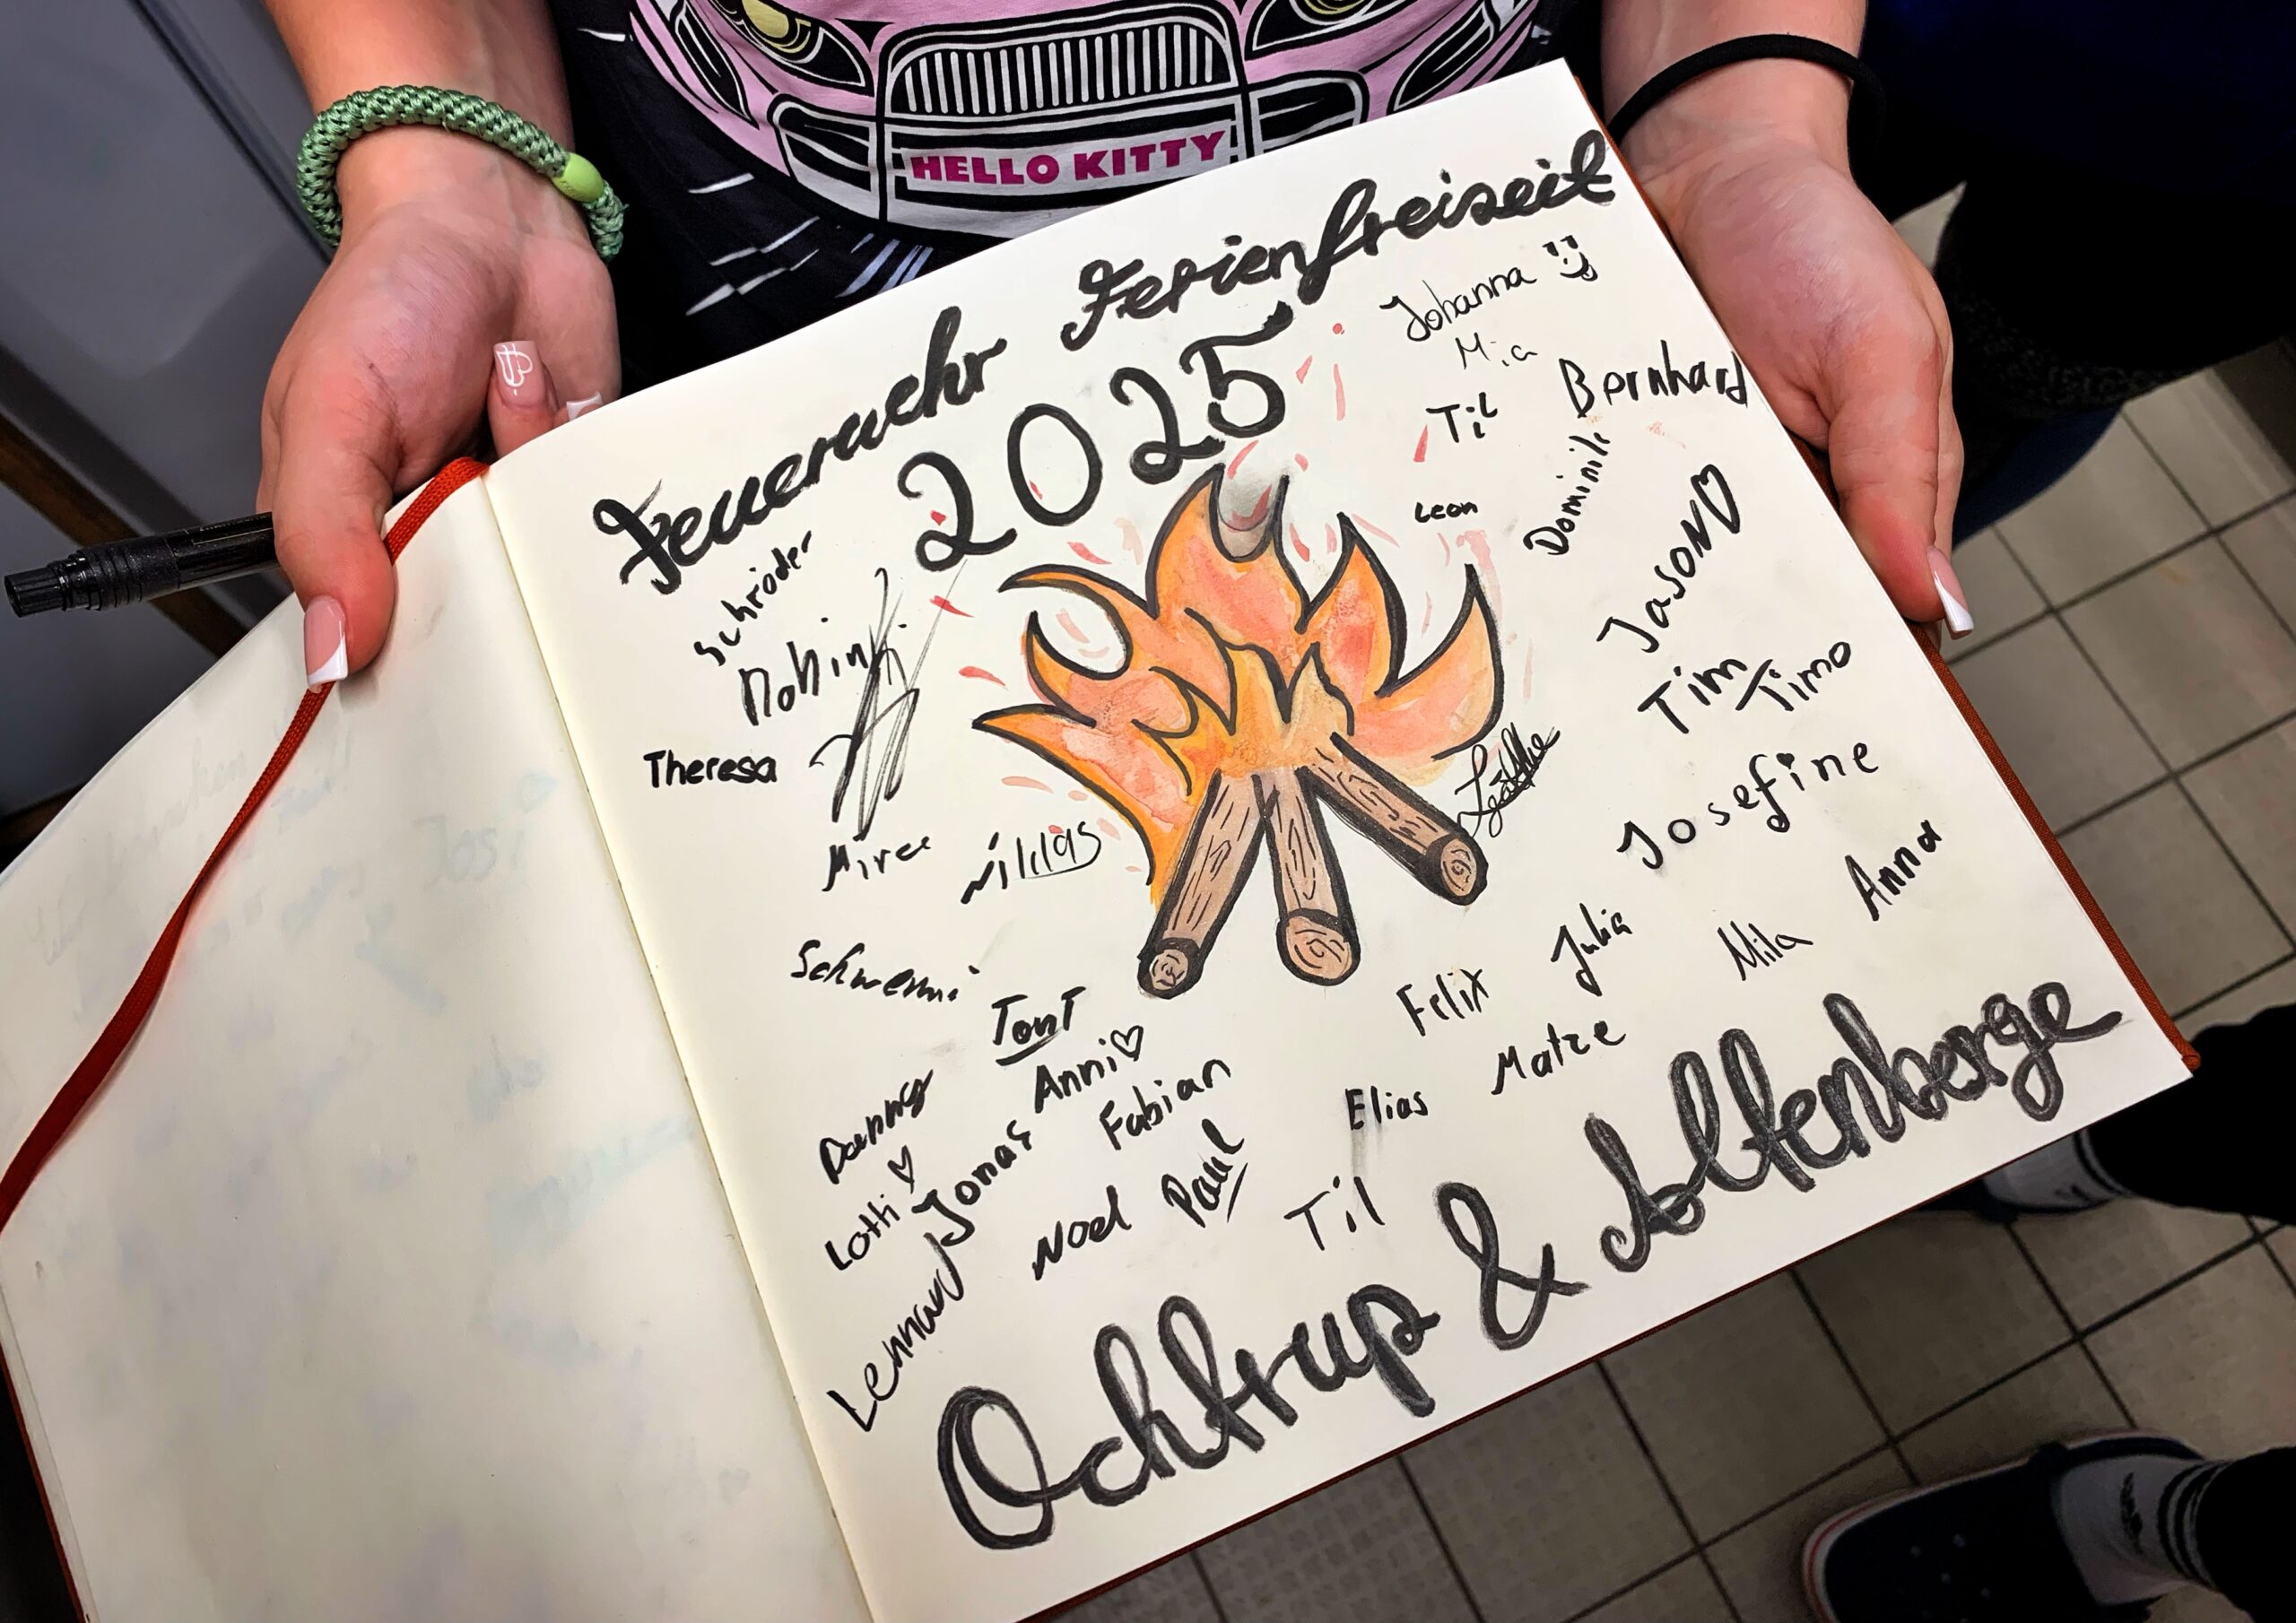 HELLO KITTY
Feuerwehr Ferienfreizeit
2025
Johanna
Mia
Til
Bernhard
Dominik
Leon
Jason
Schröder
Robin
Theresa
Tim
Timo
Josefine
Niklas
Anna
Mila
Julia
Felix
Matze
Schwemi
Toni
Anni
Fabian
Elias
Danny
Lotti
Jonas
Noel
Paul
Til
Lennard
Ochtrup & Altenberge